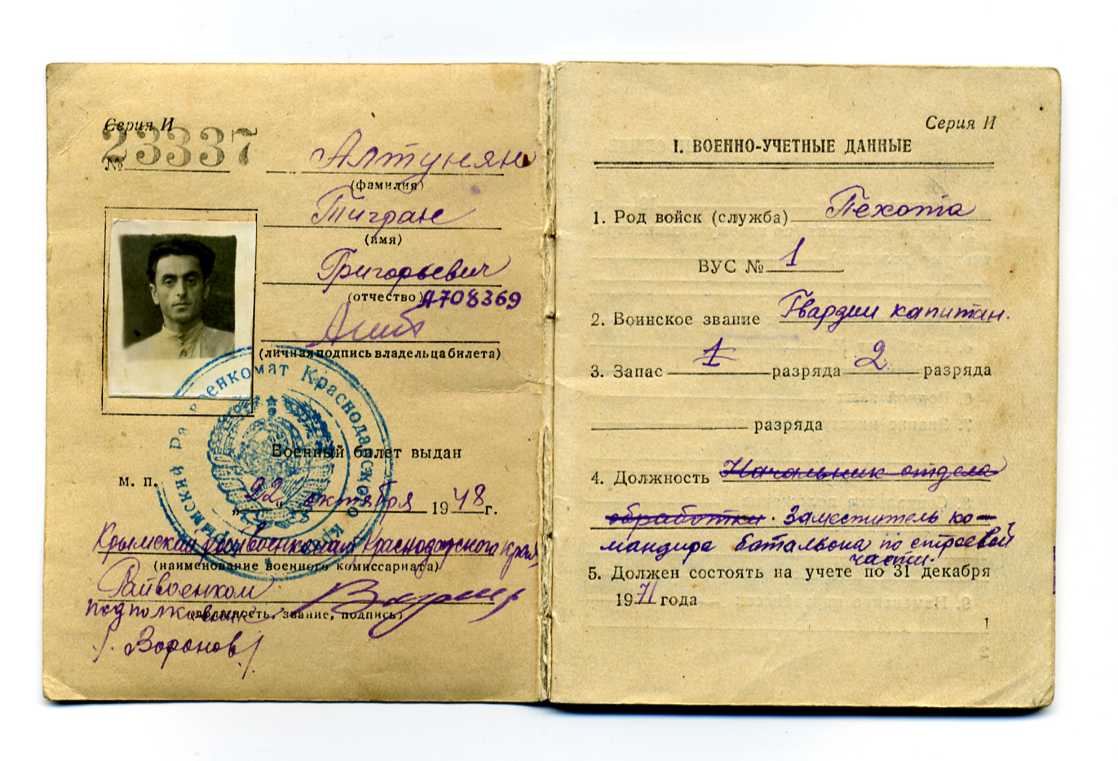 Серия И
№ 23337
Алтунян
(фамилия)
Тигран
(имя)
Григорьевич
(отчество) А708369
(личная подпись владельца билета)
Военкомат Краснодарского
Военный билет выдан
м. п.
"22" октября 1948 г.
Крымский райвоенкомат Краснодарского края
(наименование военного комиссариата)
Райвоенком
подполковник
(должность, звание, подпись)
/Воронов/
Серия И
I. ВОЕННО-УЧЕТНЫЕ ДАННЫЕ
1. Род войск (служба) Пехота
ВУС № 1
2. Воинское звание Гвардии капитан.
3. Запас 1 разряда 2 разряда
разряда
4. Должность Начальник отдела
обработки. Заместитель ко-
мандира батальона по строевой
части.
5. Должен состоять на учете по 31 декабря
1971 года
1